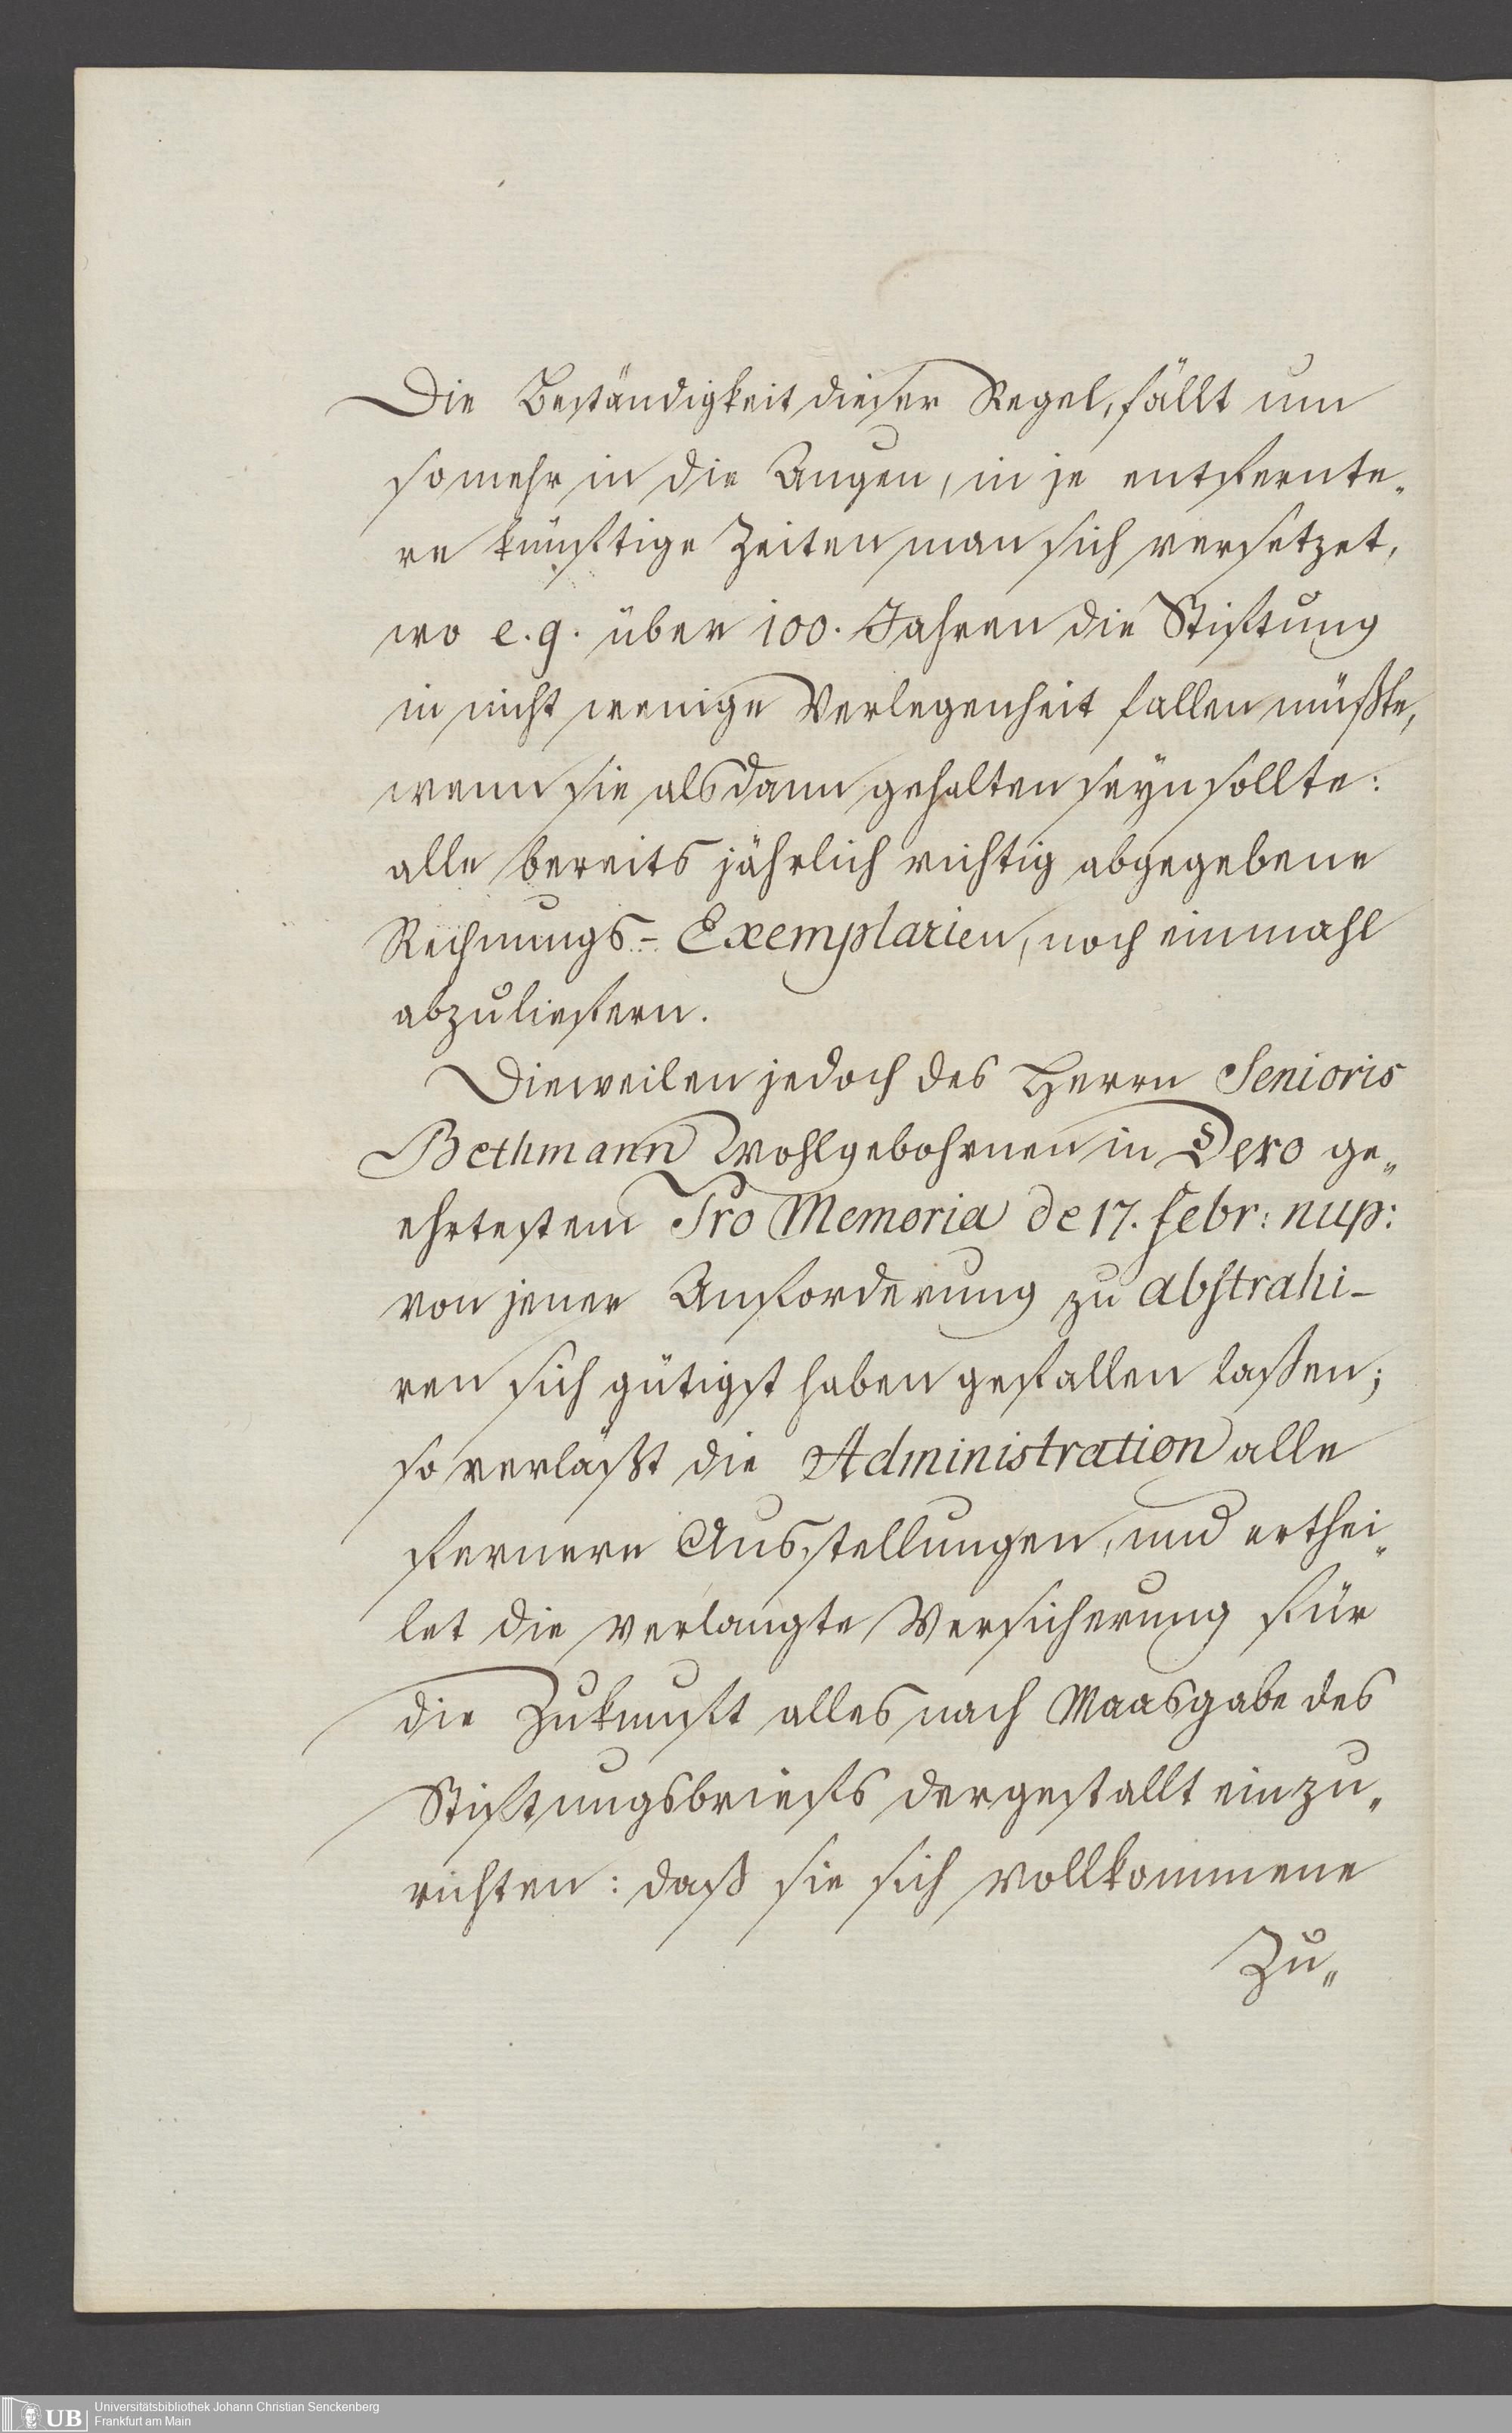 Die Beständigkeit dieser Regel, fällt um
somehr in die Augen, in je entfernte„
re künftige Zeiten man sich versetzet,
wo e. g. über 100. Jahren die Stiftung
in nicht wenige Verlegenheit fallen müßte,
wenn sie alsdann gehalten seyn sollte:
alle bereits jährlich richtig abgegebene
Rechnungs- Exemplarien, noch einmahl
abzuliefern.
Dieweilen jedoch des Herrn Senioris
Bethmann Wohlgebohrnen in Dero ge„
ehrtestem Pro Memoria de 17. Febr: nup:
von jener Anforderung zu abstrahi-
ren sich gütigst haben gefallen laßen;
so verläßt die Administration alle
fernere Ausstellungen, und erthei„
let die verlangte Versicherung für
die Zukunft alles nach Maasgabe des
Stiftungsbriefs dergestallt einzu„
richten: daß sie sich vollkommene
Zu„
UB
Universitätsbibliothek Johann Christian Senckenberg
Frankfurt am Main